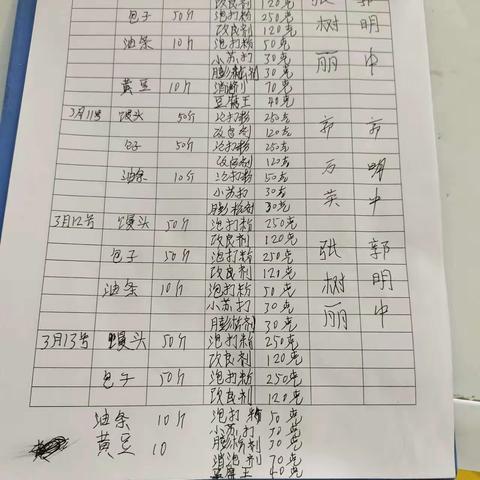 改良剂 120克 张 郭
包子 50斤 泡打粉 250克
改良剂 120克 树 明
油条 10斤 泡打粉 50克
小苏打 30克 丽 中
膨松剂 30克
黄豆 10斤 消泡剂 70克
豆腐王 40克
3月11号 馒头 50斤 泡打粉 250克
改良剂 120克 郭 郭
包子 50斤 泡打粉 250克
改良剂 120克 万 明
油条 10斤 泡打粉 50克
小苏打 30克 英 中
膨松剂 30克
3月12号 馒头 50斤 泡打粉 250克
改良剂 120克 张 郭
包子 50斤 泡打粉 250克
改良剂 120克 树 明
油条 10斤 泡打粉 50克
小苏打 30克 丽 中
膨松剂 30克
3月13号 馒头 50斤 泡打粉 250克
改良剂 120克
包子 50斤 泡打粉 250克
改良剂 120克
油条 10斤 泡打粉 50克
小苏打 70克
黄豆 10 膨松剂 30克
消泡剂 70克
豆腐王 40克